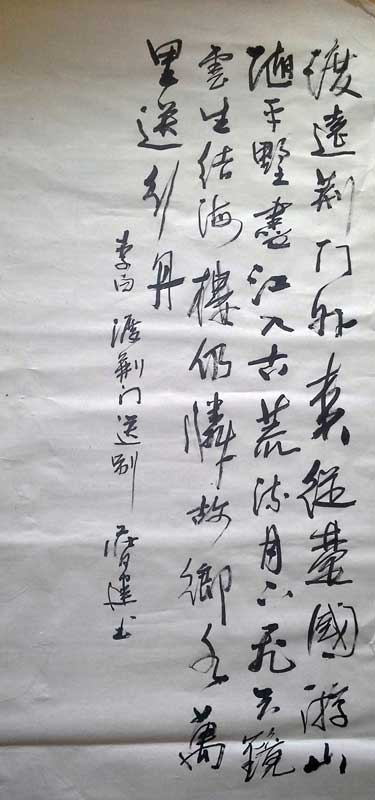 渡遠荆门外来從楚國游山
隨平野盡江入古荒流月下飛天鏡
雲生结海樓仍憐故鄉水萬
里送行舟
李白 渡荆门送别 建书